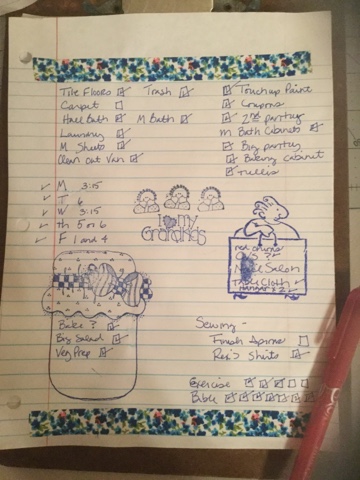 Tile Floors Trash
Carpet
Hall Bath M Bath
Laundry
M Sheets
Clean out Van
Touchup Paint
Coupons
2nd pantry
M Bath Cabinets
Big pantry
Baking cabinet
Trellis
M 3:15
T 6
W 3:15
th 5 or 6
F 1 and 4
I my
Grandkids
red onions
Salon
Table Cloth
x 2
Bake ?
Big Salad
Veg Prep
Sewing -
Finish Aprons
Rex's Shirts
Exercise
Bible